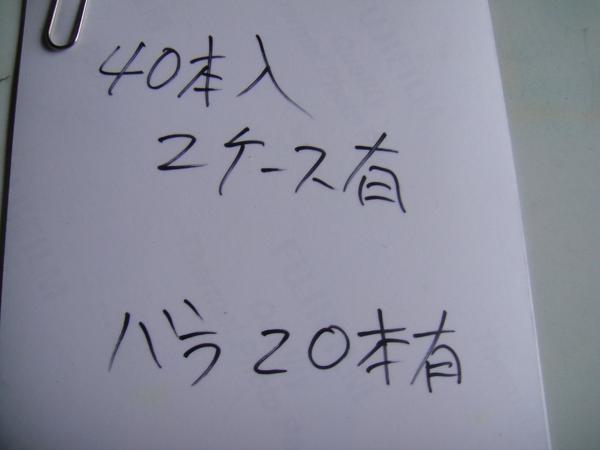 40本入
2ケース有
バラ20本有